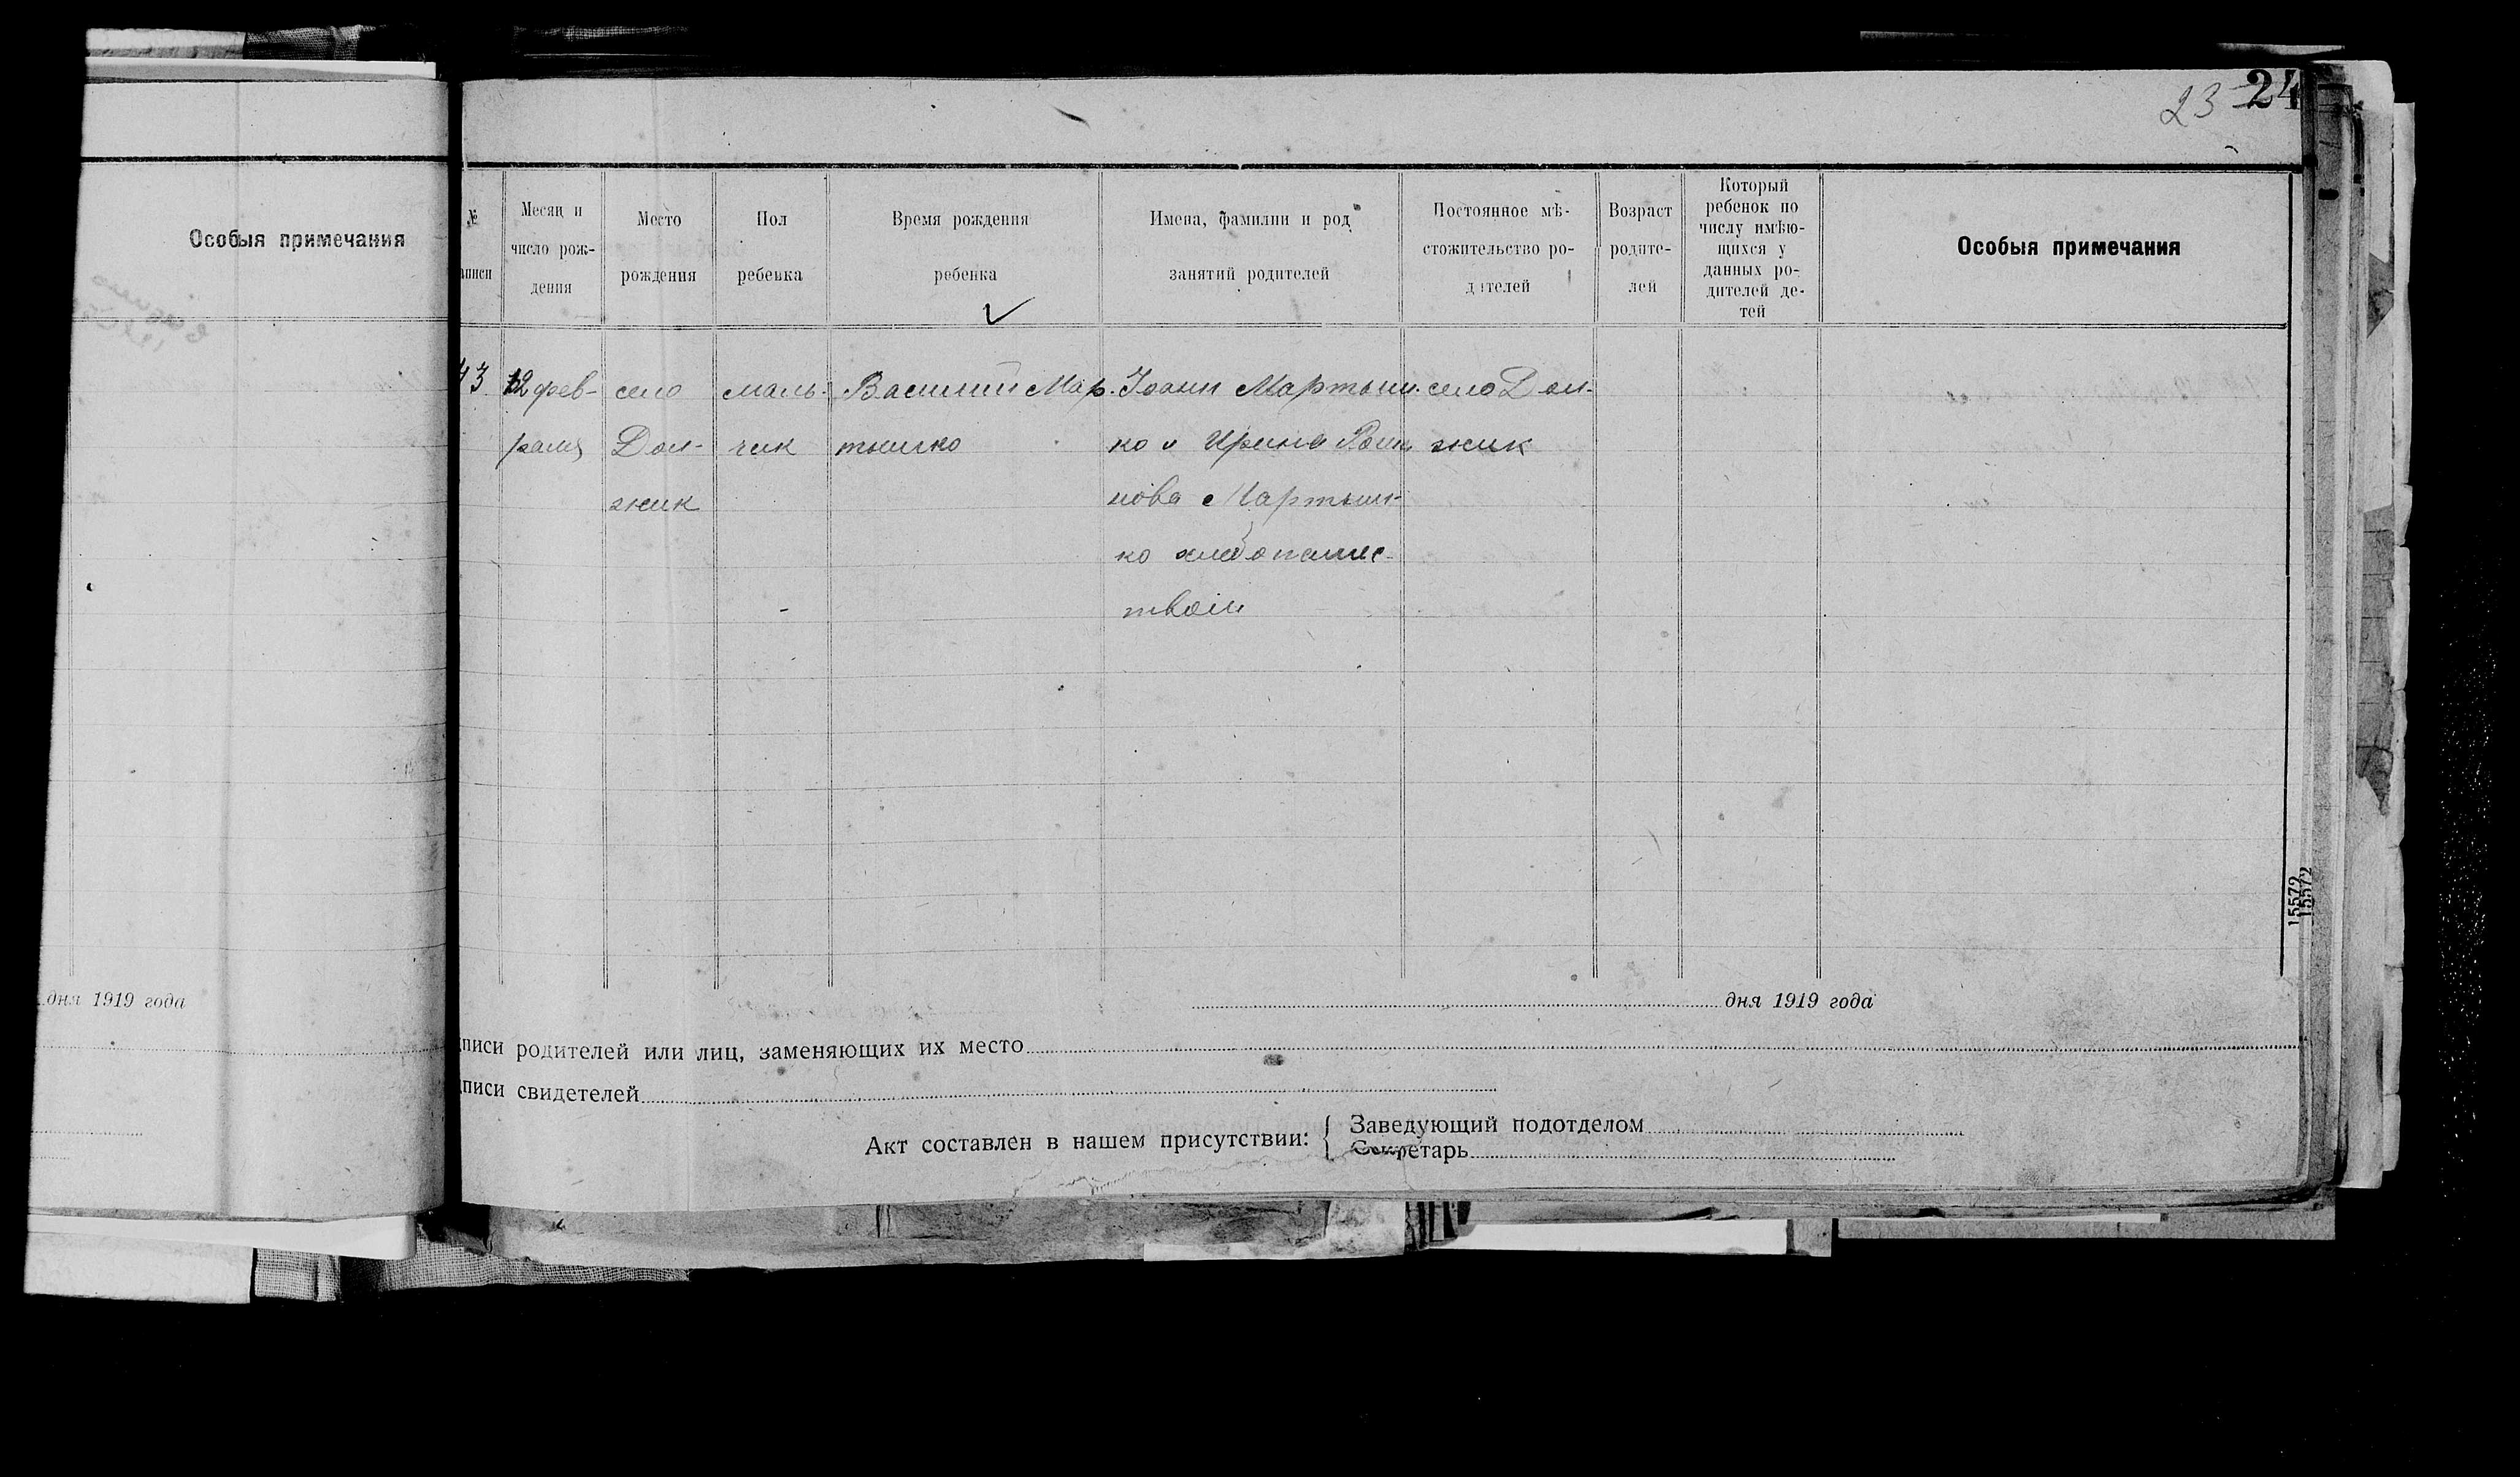 23 24
Особыя примечания
дня 1919 года
№
аписи
Месяц и
число рож-
дения
Место
рождения
Пол
ребенка
Время рождения
ребенка
Имена, фамилии и род
занятий родителей
Постоянное мѣ-
стожительство ро-
дителей
Возраст
родите-
лей
Который
ребенок по
числу имѣю-
щихся у
данных ро-
дителей де-
тей
Особыя примечания
43 12 фев- село маль- Василий Мар- Иоанн Мартын- село Дол-
раля Дол- чик тынко ко и Ирина жик
жик нова Мартын-
ко хлебопашес-
твом
15572
15572
дня 1919 года
писи родителей или лиц, заменяющих их место
писи свидетелей
Акт составлен в нашем присутствии: { Заведующий подотделом
Секретарь